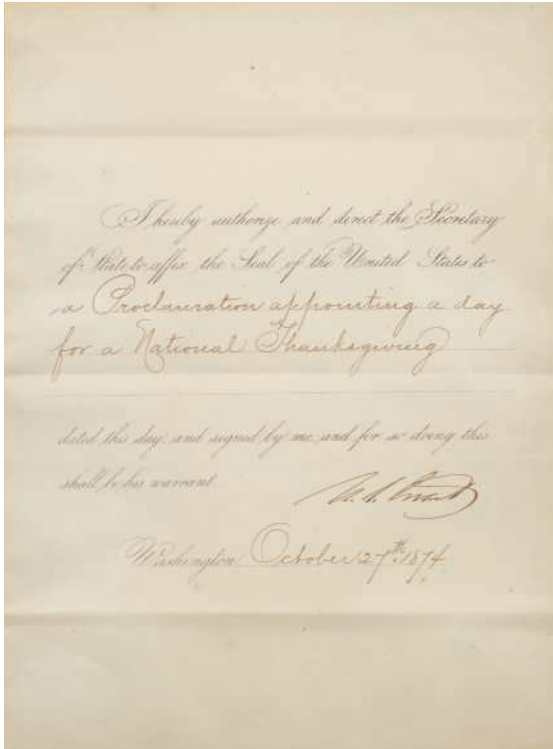 I hereby authorize and direct the Secretary
of State to affix the Seal of the United States to
a Proclamation appointing a day
for a National Thanksgiving
dated this day and signed by me and for so doing this
shall be his warrant.
U. S. Grant
Washington October 27th. 1874.